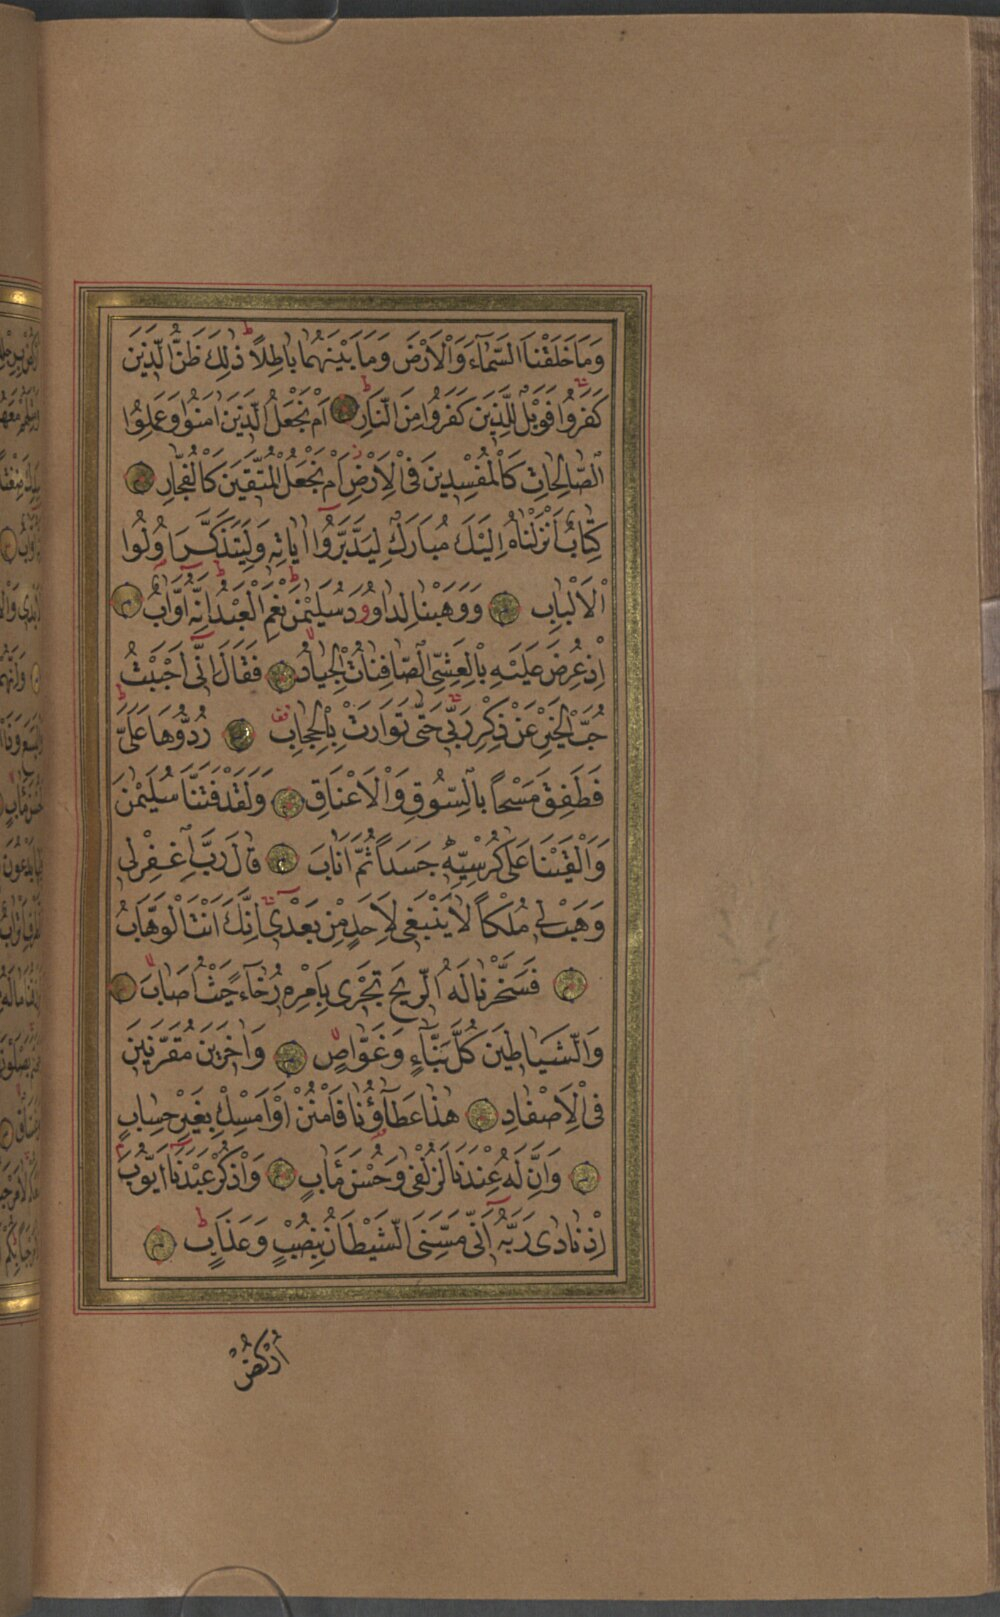 وَمَا خَلَقْنَا السَّمَاۤءَ وَالْاَرْضَ وَمَا بَيْنَهُمَا بَاطِلًا ذٰلِكَ ظَنُّ الَّذِينَ
كَفَرُوا فَوَيْلٌ لِلَّذِينَ كَفَرُوا مِنَ النَّارِ اَمْ نَجْعَلُ الَّذِينَ اٰمَنُوا وَعَمِلُوا
الصَّالِحَاتِ كَالْمُفْسِدِينَ فِى الْاَرْضِ اَمْ نَجْعَلُ الْمُتَّقِينَ كَالْفُجَّارِ
كِتَابٌ اَنْزَلْنَاهُ اِلَيْكَ مُبَارَكٌ لِيَدَّبَّرُوا اٰيَاتِهِ وَلِيَتَذَكَّرَ اُولُوا
الْاَلْبَابِ وَوَهَبْنَا لِدَاوُودَ سُلَيْمٰنَ نِعْمَ الْعَبْدُ اِنَّهُ اَوَّابٌ
اِذْ عُرِضَ عَلَيْهِ بِالْعَشِىِّ الصَّافِنَاتُ الْجِيَادُ فَقَالَ اِنِّى اَحْبَبْتُ
حُبَّ الْخَيْرِ عَنْ ذِكْرِ رَبِّى حَتّٰى تَوَارَتْ بِالْحِجَابِ رُدُّوهَا عَلَىَّ
فَطَفِقَ مَسْحًا بِالسُّوقِ وَالْاَعْنَاقِ وَلَقَدْ فَتَنَّا سُلَيْمٰنَ
وَاَلْقَيْنَا عَلٰى كُرْسِيِّهِ جَسَدًا ثُمَّ اَنَابَ قَالَ رَبِّ اغْفِرْ لِى
وَهَبْ لِى مُلْكًا لَا يَنْبَغِى لِاَحَدٍ مِنْ بَعْدِى اِنَّكَ اَنْتَ الْوَهَّابُ
فَسَخَّرْنَا لَهُ الرِّيحَ تَجْرِى بِاَمْرِهِ رُخَاۤءً حَيْثُ اَصَابَ
وَالشَّيَاطِينَ كُلَّ بَنَّاۤءٍ وَغَوَّاصٍ وَاٰخَرِينَ مُقَرَّنِينَ
فِى الْاَصْفَادِ هٰذَا عَطَاۤؤُنَا فَامْنُنْ اَوْ اَمْسِكْ بِغَيْرِ حِسَابٍ
وَاِنَّ لَهُ عِنْدَنَا لَزُلْفٰى وَحُسْنَ مَاٰبٍ وَاذْكُرْ عَبْدَنَا اَيُّوبَ
اِذْ نَادٰى رَبَّهُ اَنِّى مَسَّنِىَ الشَّيْطَانُ بِنُصْبٍ وَعَذَابٍ
اُرْكُضْ